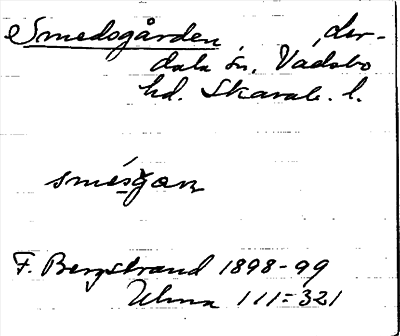 Smedsgården, Ler-
dala sn, Vadsbo
hd. Skarab. l.
smésgan
F. Bergstrand 1898-99
Ulma 111:321